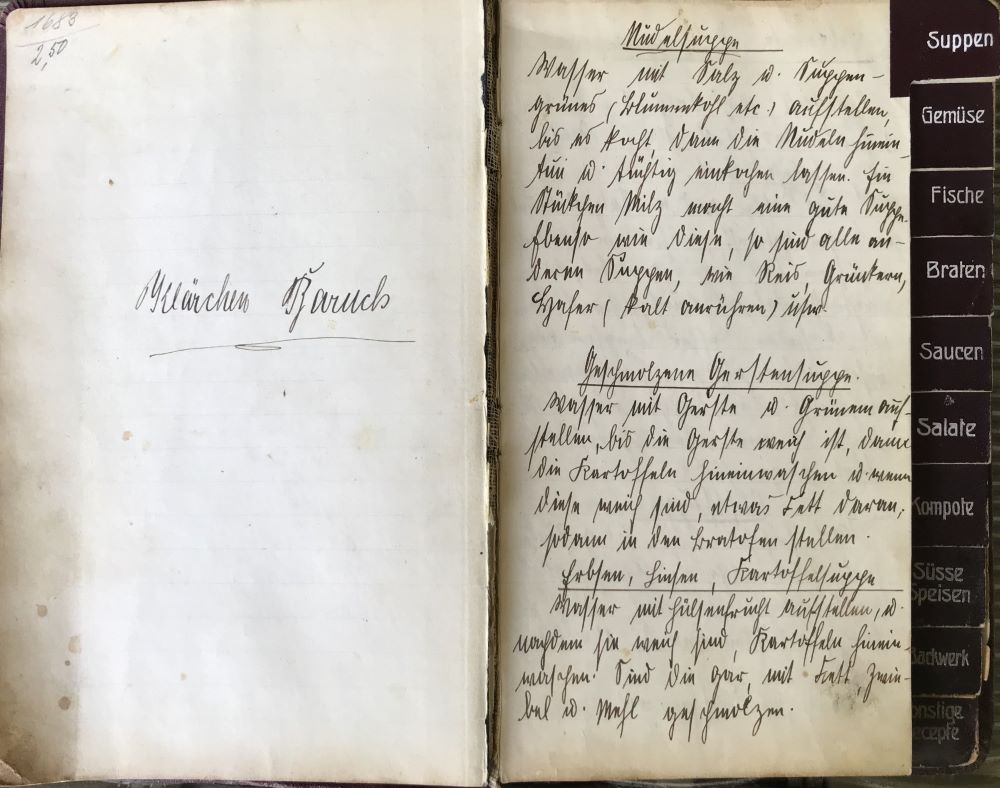 1683
2,50
Klärchen Baruch
Nudelsuppe
Wasser mit Salz u. Suppen-
grünes (Blumenkohl etc.) aufstellen,
bis es kocht, dann die Nudeln hinein-
tun u. tüchtig einkochen lassen. Ein
Stückchen Milz macht eine gute Suppe.
Ebenso wie diese, so sind alle an-
deren Suppen, wie Reis, Grünkern,
Hafer (kalt anrühren) usw.
Geschmolzene Gerstensuppe.
Wasser mit Gerste u. Grünem auf-
stellen, bis die Gerste weich ist, dann
die Kartoffeln hineinwaschen u. wenn
diese weich sind, etwas Fett daran,
sodann in den Bratofen stellen.
Erbsen, Linsen, Kartoffelsuppe
Wasser mit Hülsenfrucht aufstellen, u.
nachdem sie weich sind, Kartoffeln hinein-
waschen. Sind die gar, mit Fett, Zwie-
bel u. Mehl geschmolzen.
Suppen
Gemüse
Fische
Braten
Saucen
Salate
Kompote
Süsse
Speisen
Backwerk
onstige
ecepte